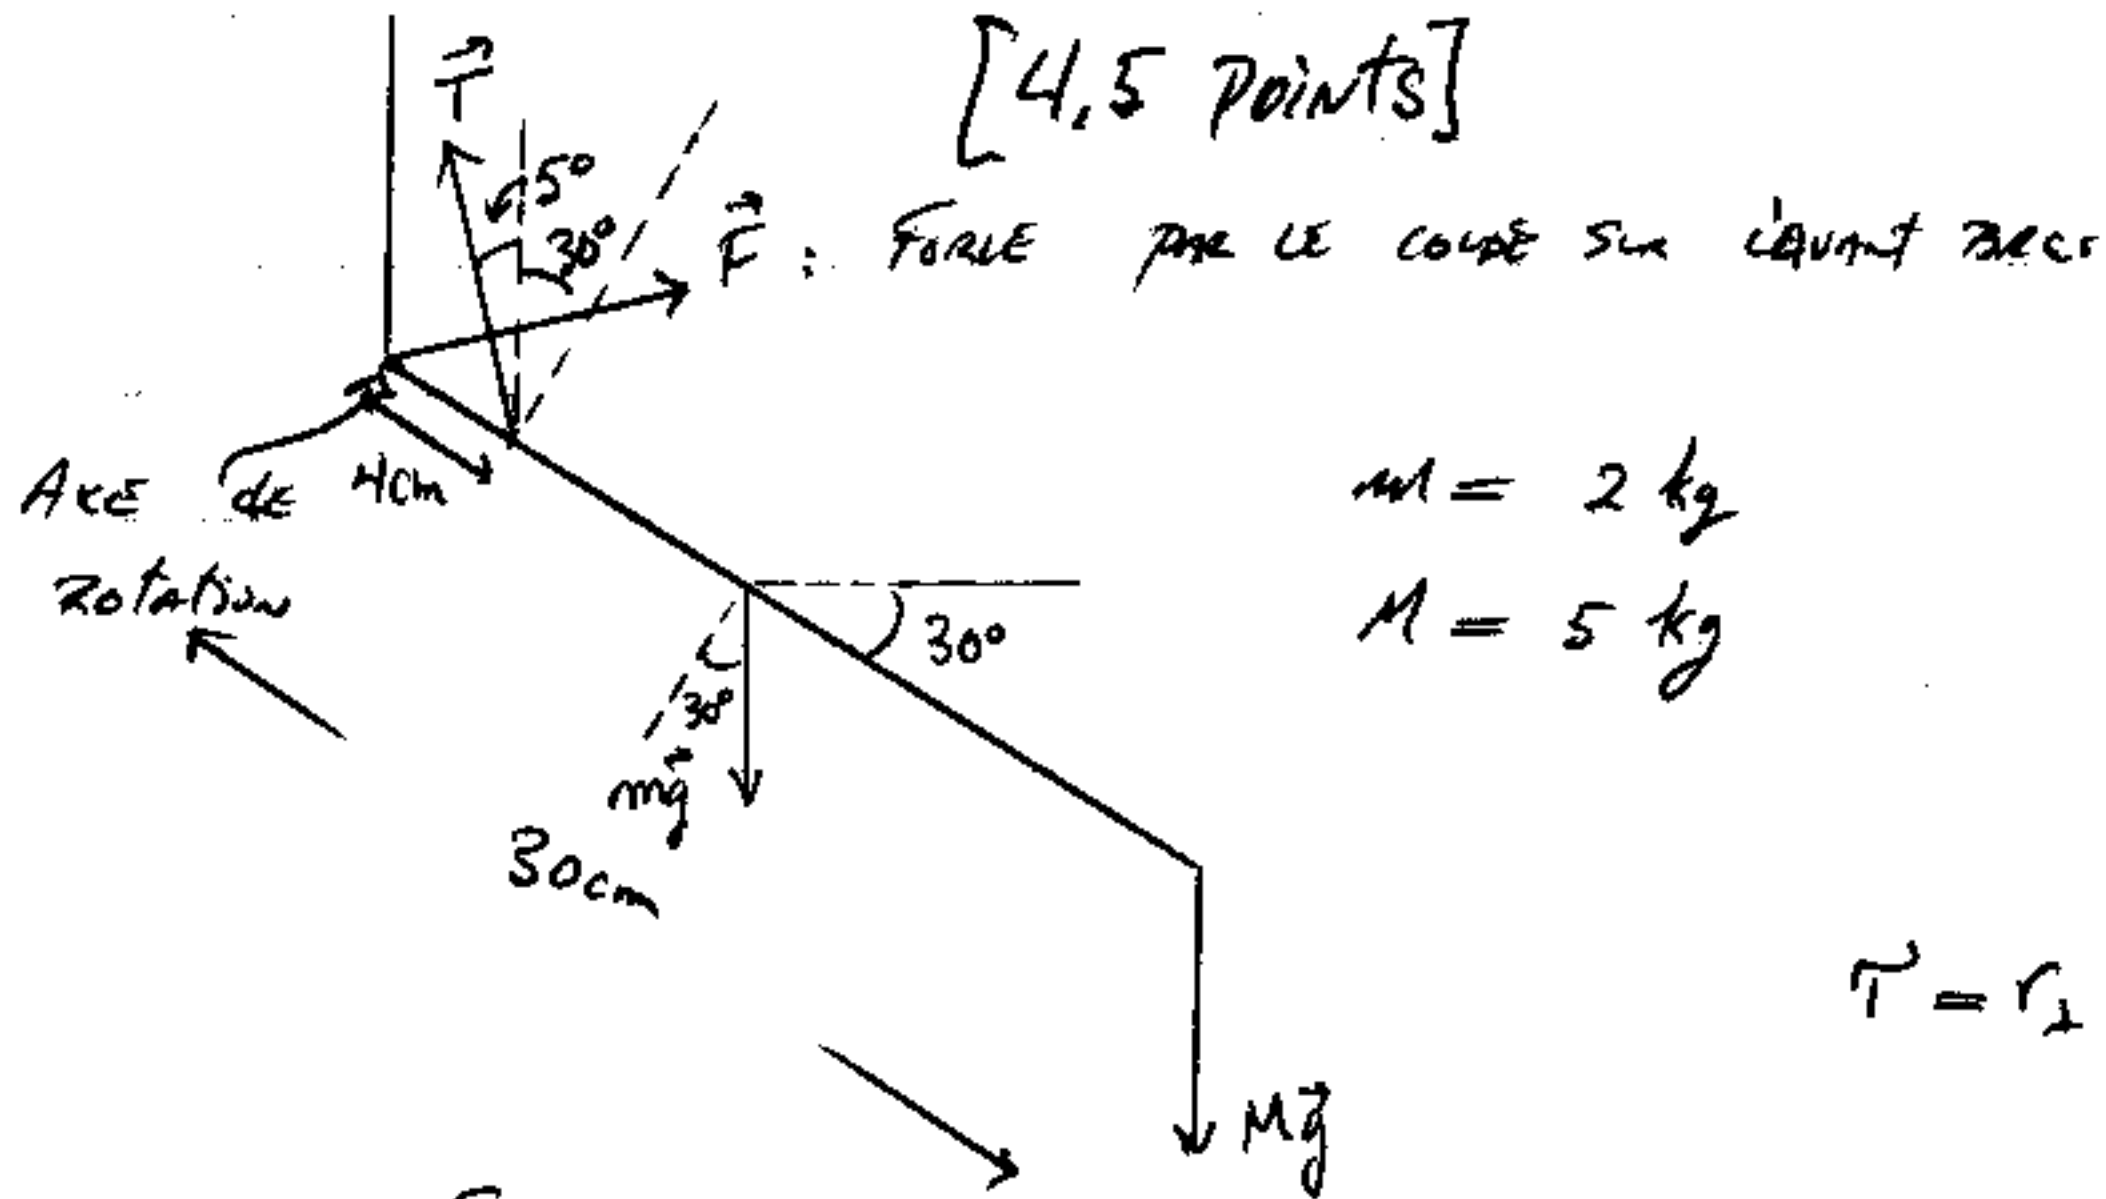 [4,5 POINTS]
T⃗
5°
30°
F⃗ : FORCE PAR LE COUDE SUR L'AVANT BRAS
AXE DE
ROTATION
4cm
m = 2 kg
M = 5 kg
30°
30°
mg⃗
30cm
τ = r⊥
Mg⃗